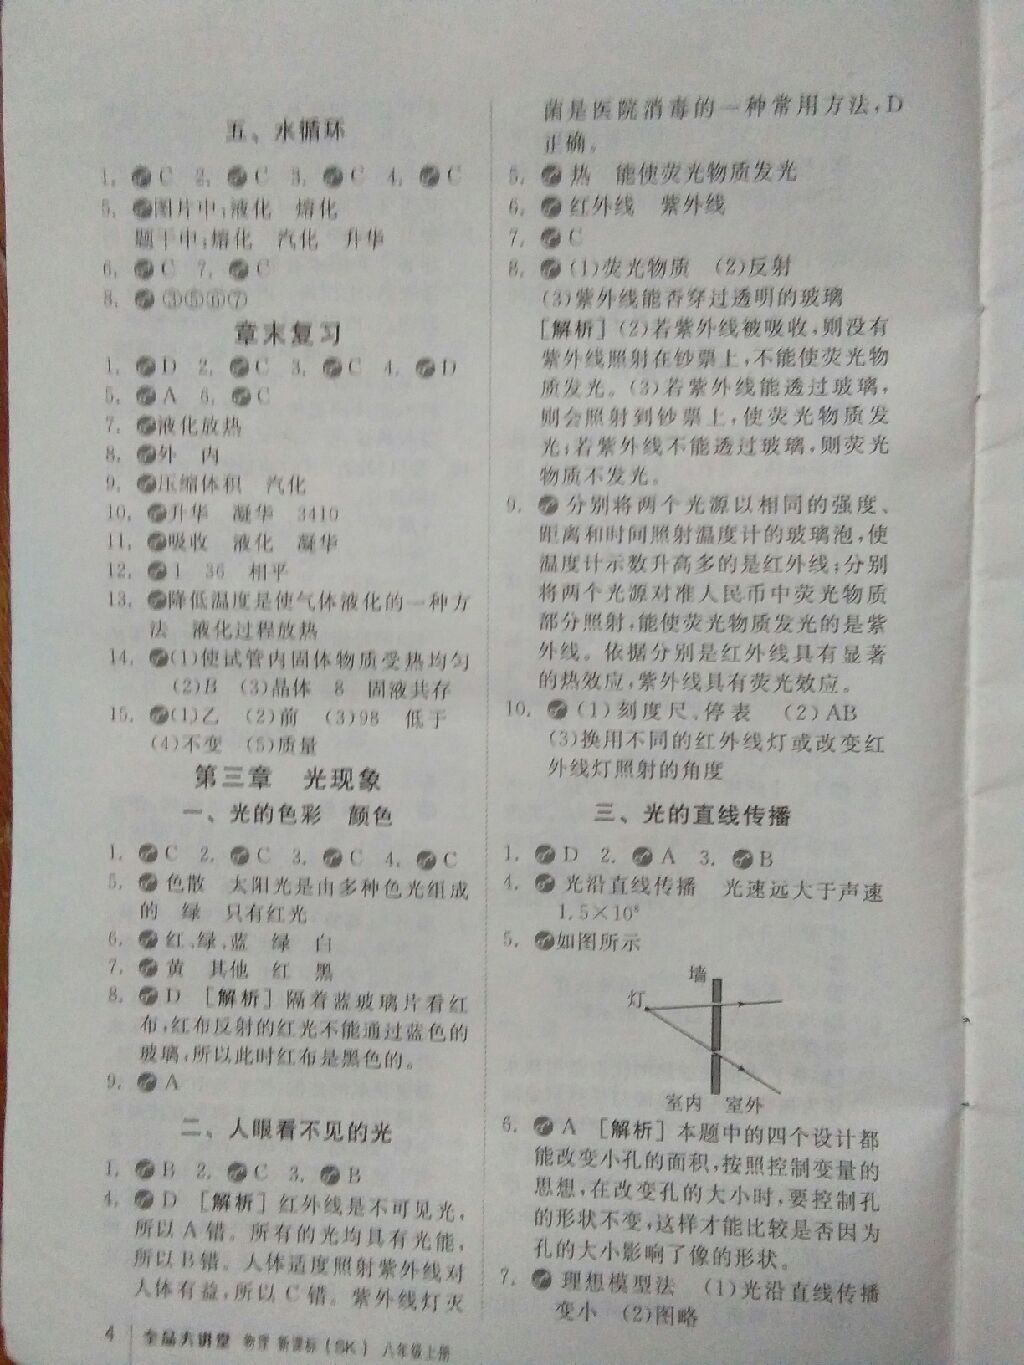 五、水循环
1. C 2. C 3. C 4. C
5. 图片中:液化 熔化
题干中:熔化 汽化 升华
6. C 7. C
8. ③⑤⑥⑦
章末复习
1. D 2. C 3. C 4. D
5. A 6. C
7. 液化放热
8. 外 内
9. 压缩体积 汽化
10. 升华 凝华 3410
11. 吸收 液化 凝华
12. 1 36 相平
13. 降低温度是使气体液化的一种方
法 液化过程放热
14. (1)使试管内固体物质受热均匀
(2)B (3)晶体 8 固液共存
15. (1)乙 (2)前 (3)98 低于
(4)不变 (5)质量
第三章 光现象
一、光的色彩 颜色
1. C 2. C 3. C 4. C
5. 色散 太阳光是由多种色光组成
的 绿 只有红光
6. 红、绿、蓝 绿 白
7. 黄 其他 红 黑
8. D [解析]隔着蓝玻璃片看红
布,红布反射的红光不能通过蓝色的
玻璃,所以此时红布是黑色的。
9. A
二、人眼看不见的光
1. B 2. C 3. B
4. D [解析]红外线是不可见光,
所以A错。所有的光均具有光能,
所以B错。人体适度照射紫外线对
人体有益,所以C错。紫外线灯灭
菌是医院消毒的一种常用方法,D
正确。
5. 热 能使荧光物质发光
6. 红外线 紫外线
7. C
8. (1)荧光物质 (2)反射
(3)紫外线能否穿过透明的玻璃
[解析](2)若紫外线被吸收,则没有
紫外线照射在钞票上,不能使荧光物
质发光。(3)若紫外线能透过玻璃,
则会照射到钞票上,使荧光物质发
光;若紫外线不能透过玻璃,则荧光
物质不发光。
9. 分别将两个光源以相同的强度、
距离和时间照射温度计的玻璃泡,使
温度计示数升高多的是红外线;分别
将两个光源对准人民币中荧光物质
部分照射,能使荧光物质发光的是紫
外线。依据分别是红外线具有显著
的热效应,紫外线具有荧光效应。
10. (1)刻度尺、停表 (2)AB
(3)换用不同的红外线灯或改变红
外线灯照射的角度
三、光的直线传播
1. D 2. A 3. B
4. 光沿直线传播 光速远大于声速
1.5×10⁸
5. 如图所示
墙
灯
室内 室外
6. A [解析]本题中的四个设计都
能改变小孔的面积,按照控制变量的
思想,在改变孔的大小时,要控制孔
的形状不变,这样才能比较是否因为
孔的大小影响了像的形状。
7. 理想模型法 (1)光沿直线传播
变小 (2)图略
4 全品大讲堂 物理 新课标(SK) 八年级上册